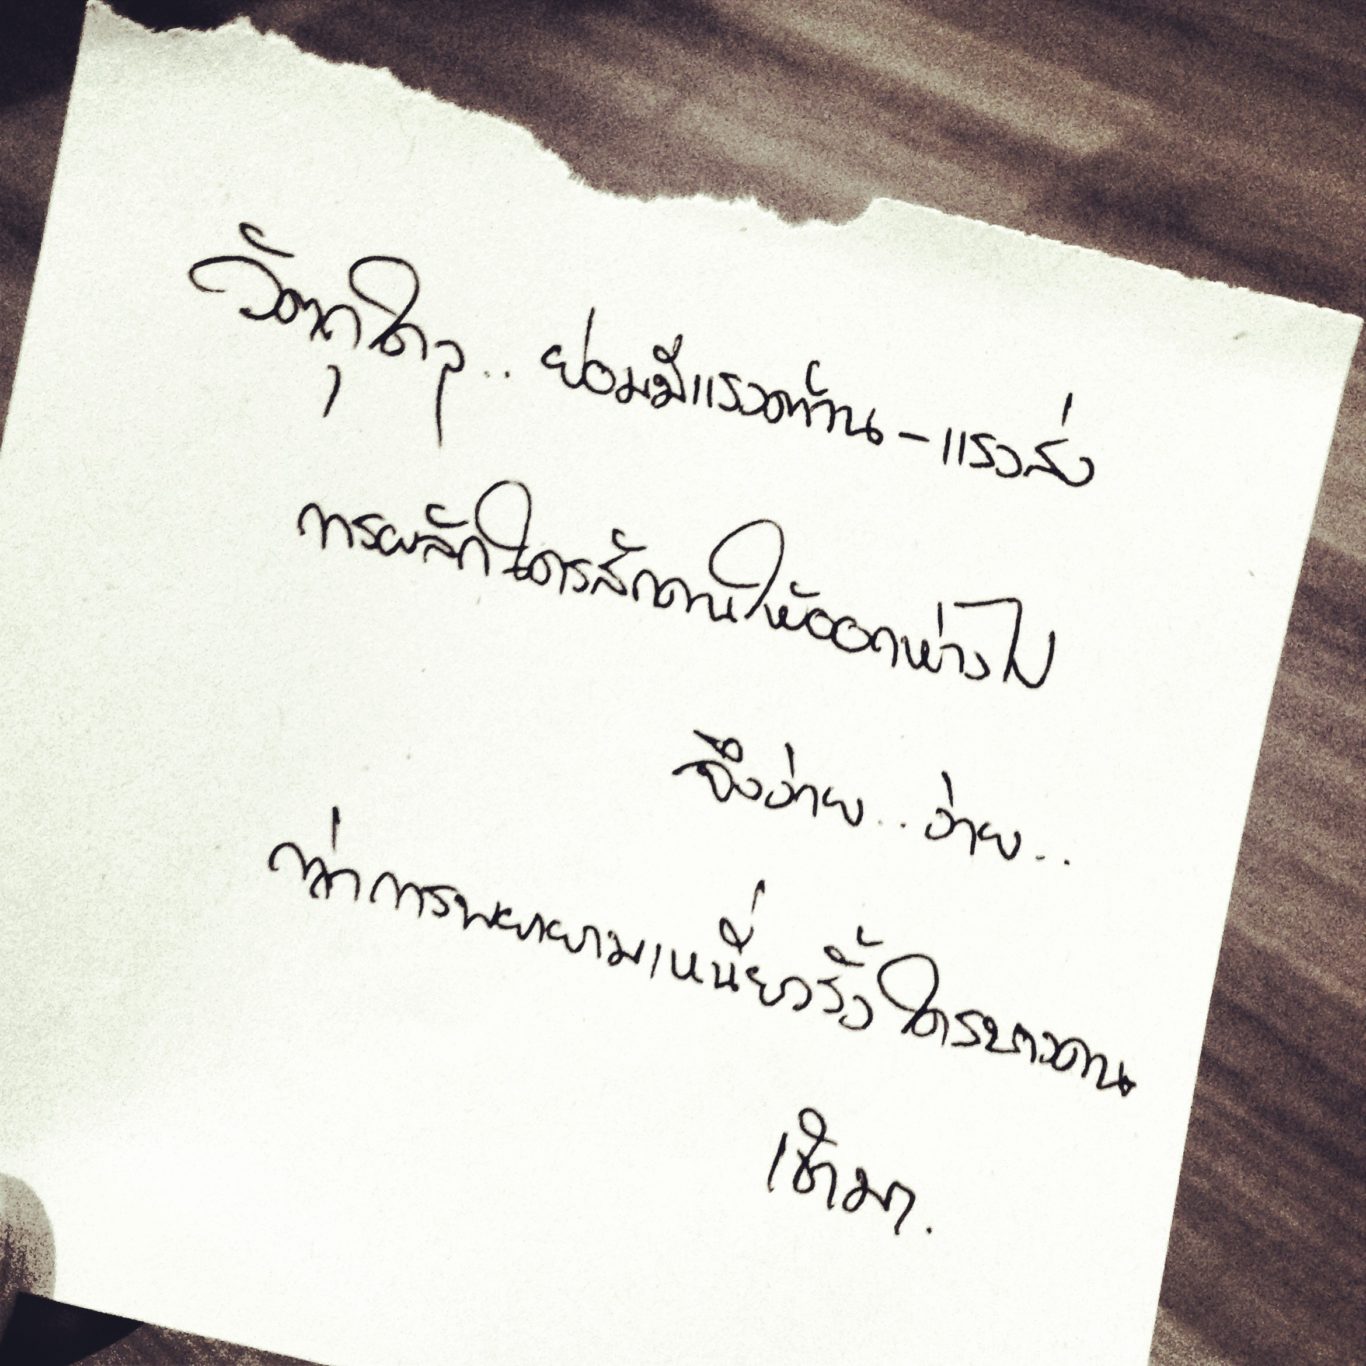 วัตถุใดๆ.. ย่อมมีแรงต้าน-แรงส่ง
การผลักใครสักคนให้ออกห่างไป
จึงง่าย.. ง่าย..
กว่าการพยายามเหนี่ยวรั้งใครบางคน
เข้ามา.